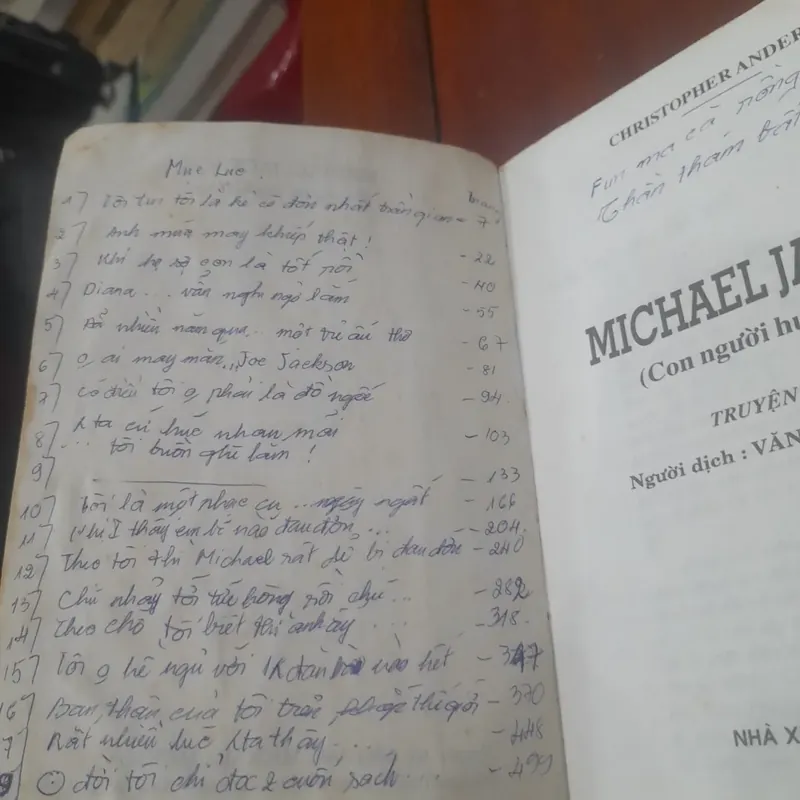 Mục Lục
Trang
1) Tôi tin tôi là kẻ cô đơn nhất trần gian - 7
2) Anh múa may khiếp thật!
3) Khi họ sợ con là tốt rồi - 22
4) Diana... vẫn nghi ngờ lắm - 40
- 55
5) Đã nhiều năm qua... một vì ấu thơ - 67
6) 0 ai may mắn,, Joe Jackson - 81
7) Có điều tôi 0 phải là đồ ngốc - 94
8) Nta cứ húc nhau mãi - 103
9) ... tôi buồn ghê lắm! - 133
10) Tôi là một nhạc cụ... - 166
11) Khi I thấy em bé nào đau đớn... - 204
12) Theo tôi thì Michael rất dễ bị đau đớn - 240
13) Chú nhảy tới chứ... - 282
14) Theo chỗ tôi biết thì anh ấy... - 318
15) Tôi 0 hề ngủ với 1 đàn bà nào hết - 347
16) Bạn thân của tôi trên thế giới - 370
7) Rất nhiều lúc Nta thấy... - 448
đời tôi chỉ đọc 2 cuốn sách... - 499
CHRISTOPHER ANDER
Thần thám bất
MICHAEL JA
(Con người hu
TRUYỆN
Người dịch : VĂN
NHÀ X